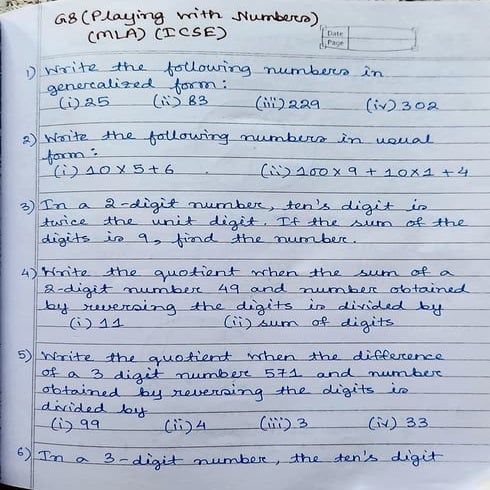 G8 (Playing with Numbers)
(MLA) (ICSE)
Date
Page
1) Write the following numbers in
generalized form:
(i) 25 (ii) 83 (iii) 229 (iv) 302
2) Write the following numbers in usual
form:
(i) 10 x 5 + 6 (ii) 100 x 9 + 10 x 1 + 4
3) In a 2-digit number, ten's digit is
twice the unit digit. If the sum of the
digits is 9, find the number.
4) Write the quotient when the sum of a
2-digit number 49 and number obtained
by reversing the digits is divided by
(i) 11 (ii) sum of digits
5) Write the quotient when the difference
of a 3 digit number 571 and number
obtained by reversing the digits is
divided by
(i) 99 (ii) 4 (iii) 3 (iv) 33
6) In a 3-digit number, the ten's digit